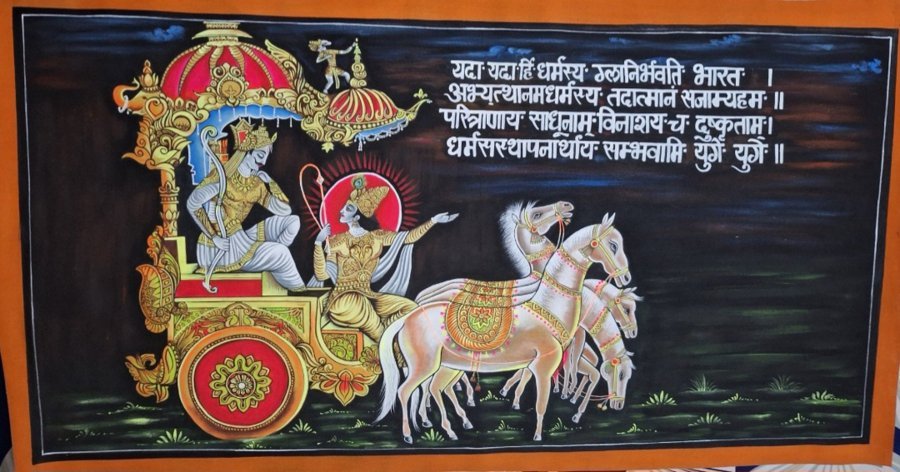 यदा यदा हि धर्मस्य ग्लानिर्भवति भारत ।
अभ्यूत्थानमधर्मस्य तदात्मानं सजाम्यहम ॥
परित्राणाय साधूनाम् विनाशाय च दुष्कृताम् ।
धर्मसंस्थापनार्थाय सम्भवामि युगे युगे ॥